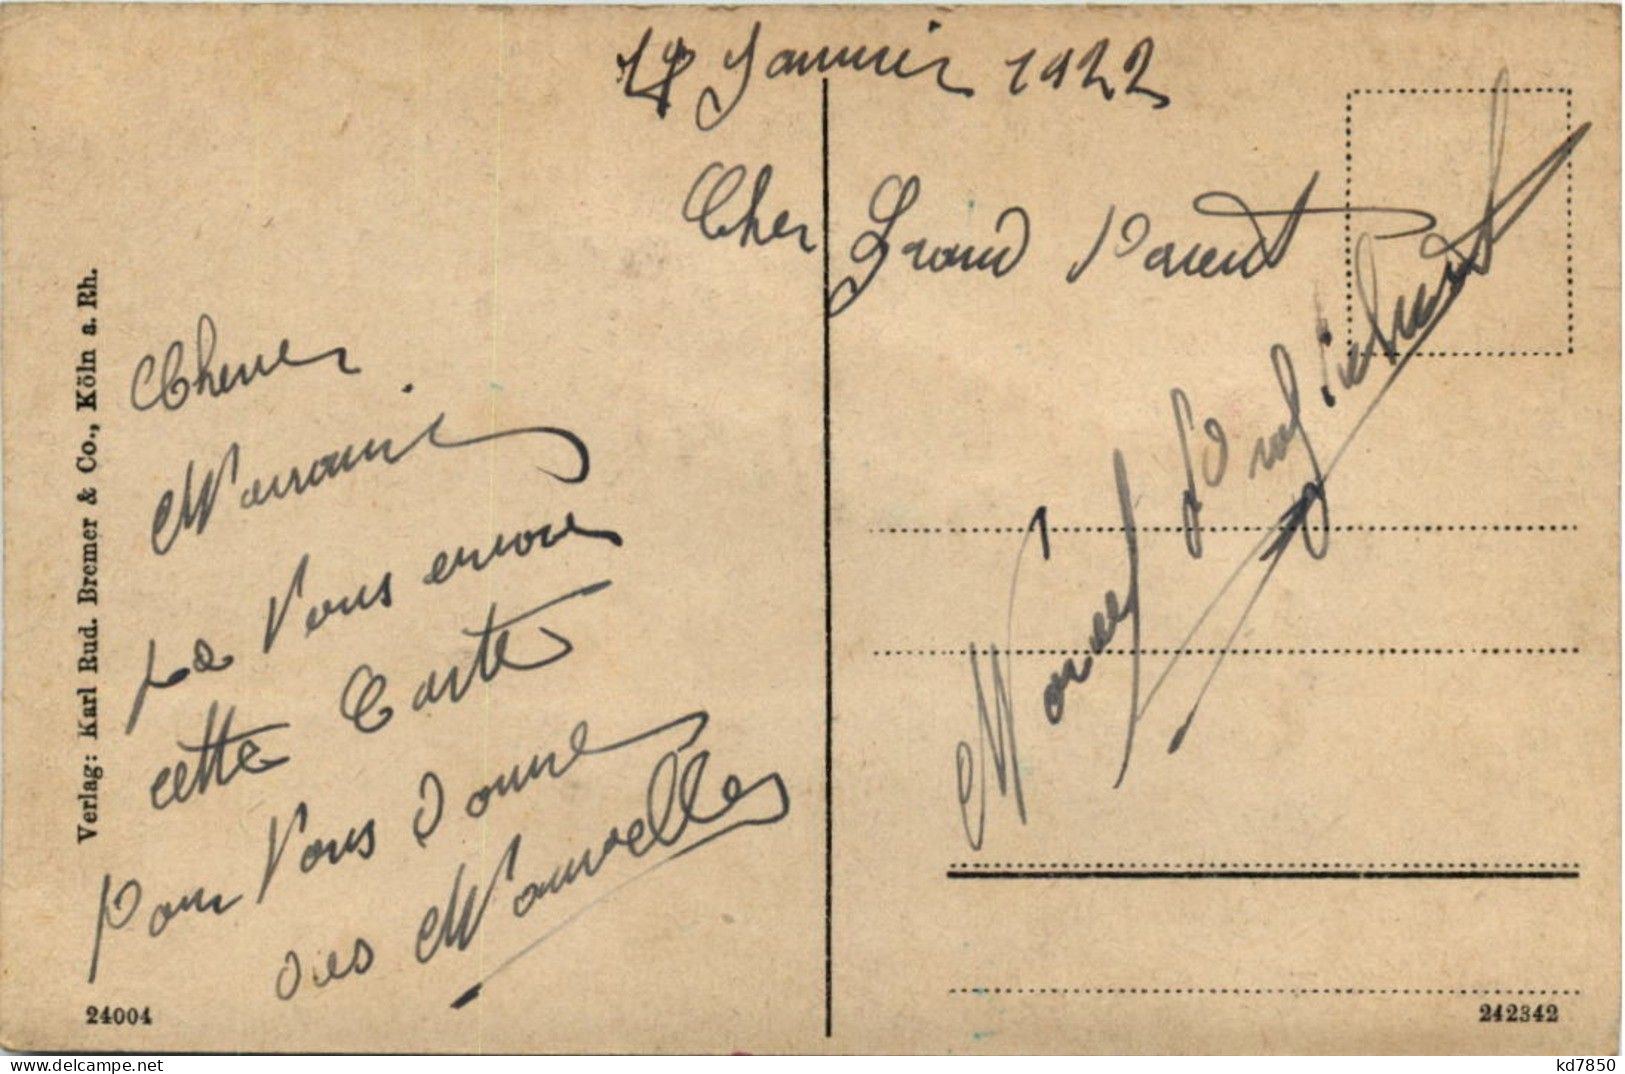 Janvier 1922
Cher Grand Parent
Chere
Marraine
Je Vous envoie
cette Carte
Pour Vous donne
des Nouvelles
Marcel
Verlag: Karl Rud. Bremer & Co., Köln a. Rh.
24004
242342
kd7850